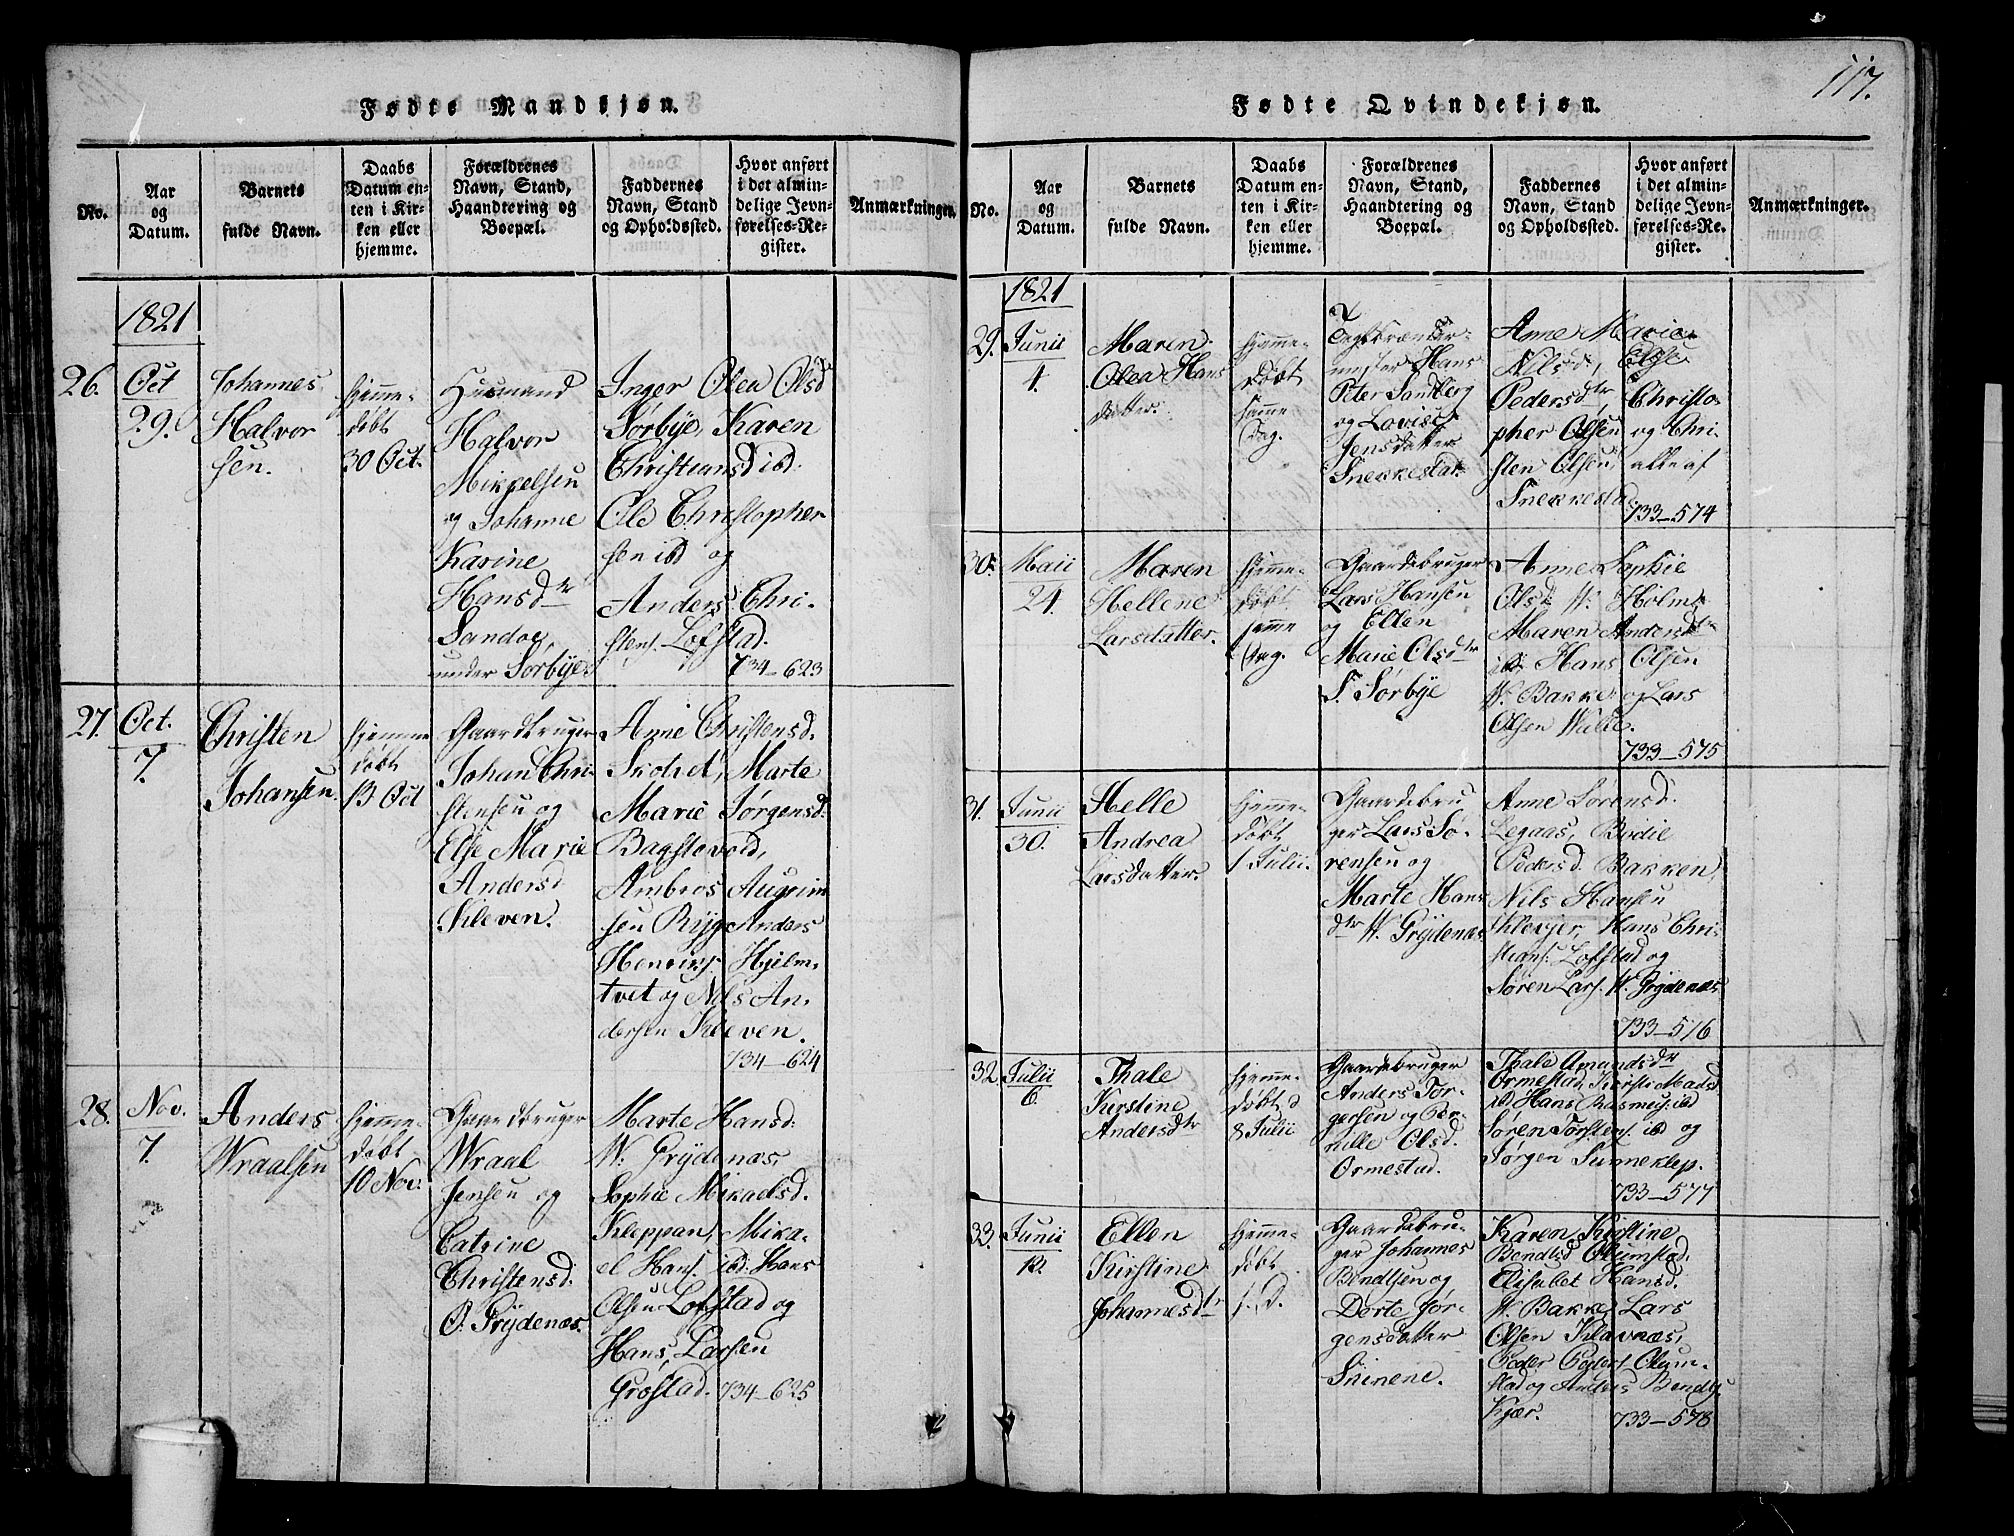 117.
Fødte Mandkjøn.
No.
Aar
og
Datum.
Barnets
fulde Navn.
Daabs
Datum en-
ten i Kir-
ken eller
hjemme.
Forældrenes
Navn, Stand,
Haandtering og
Boepæl.
Faddernes
Navn, Stand
og Opholdssted.
Hvor anført
i det almin-
delige Jevn-
førelses-Re-
gister.
Anmærkninger.
1821
26.
Oct
29.
Johannes
Halvor
sen.
hjemme-
døbt
30 Oct.
Husmand
Halvor
Mikkelsen
og Johanne
Karine
Hansdr
Sandoe,
under Sørbye
Inger Olea Olsd
Sørbye, Karen
Christiansd ibd.
Ole Christopher
sen ibd og
Anders Chri-
stens. Lofstad.
734-623
27.
Oct.
7.
Christen
Johansen
hjemme
døbt
13 Oct
Gaardbruger
Johan Chri-
stensen og
Else Marie
Andersd
Kleven.
Anne Christensd.
Skotvet, Marte
Marie Jørgensd.
Bagstevold,
Ambros Augrim
sen Ryg Anders
Henriks. Hjelm-
tvet og Nils An-
dersen Kleven.
734-624
28.
Nov.
7.
Anders
Wraalsen
hjemme-
døbt
10 Nov.
Gaardbruger
Wraal
Jensen og
Catrine
Christensd.
Ø. Grydenæs.
Marte Hansd.
W. Grydenæs,
Sophie Mikaelsd.
Kleppan, Mika-
el Hans. ibd. Hans
Olsen Lofstad og
Hans Larsen
Grostad. 734-625
Fødte Qvindekjøn.
No.
Aar
og
Datum.
Barnets
fulde Navn.
Daabs
Datum en-
ten i Kir-
ken eller
hjemme.
Forældrenes
Navn, Stand,
Haandtering og
Boepæl.
Faddernes
Navn, Stand
og Opholdssted.
Hvor anført
i det almin-
delige Jevn-
førelses-Re-
gister.
Anmærkninger.
1821
29.
Junii
4.
Maren
Olea Hans
datter.
hjemme-
døbt
samme
Dag.
Hans
Peter Sandberg
og Lovise
Jensdatter
Snekkestad
Anne Marie
Nilsd, Else
Pedersdtr, Christo
pher Olsen og Chri-
sten Olsen, alle af
Snekkestad
733-574
30.
Maii
24.
Maren
Hellene
Larsdatter.
hjemme-
døbt
samme
Dag.
Gaardebruger
Lars Hansen
og Ellen
Marie Olsdtr
Sørbye
Anne Sophie
Olsd W. Holm
Maren Andersdtr
ibd. Hans Olsen
W. Bakke og Lars
Olsen Walle.
733-575
31.
Junii
30.
Helle
Andrea
Larsdatter.
hjemme-
døbt
1 Julii.
Gaardebru
ger Lars Sø-
rensen og
Marte Hans
dtr W. Grydenæs
Anne Sørensd.
Legaas, Bodie
Pedersd. Bakken
Nils Hansen
Klevjer, Hans Chri-
stians. Lofstad og
Søren Lars. W. Grydenæs
733-576
32.
Julii
6.
Thale
Kirstine
Andersdtr
hjemme-
døbt d
8 Julii
Gaardebruger
Anders Tor-
gersen og Per-
nille Olsd.
Ormestad.
Thale Amundsdr
Ormestad, Kirsti Mads
ibd Hans Rasmus. ibd
Søren Torstens. ibd og
Jørgen Sunneklep.
733-577
33.
Junii
12.
Ellen
Kirstine
Johannesdtr
hjemme-
døbt
s. D.
Gaardebru-
ger Johannes
Bendtsen og
Dorte Jør-
gensdatter
Sninene.
Karen Kirstine
Bendtsd Olumstad
Elisabet Hansd.
W. Bakke, Lars
Olsen Klavnæs,
Peder Peders. Olum-
stad og Anders Bendts
Kjær.
733-578